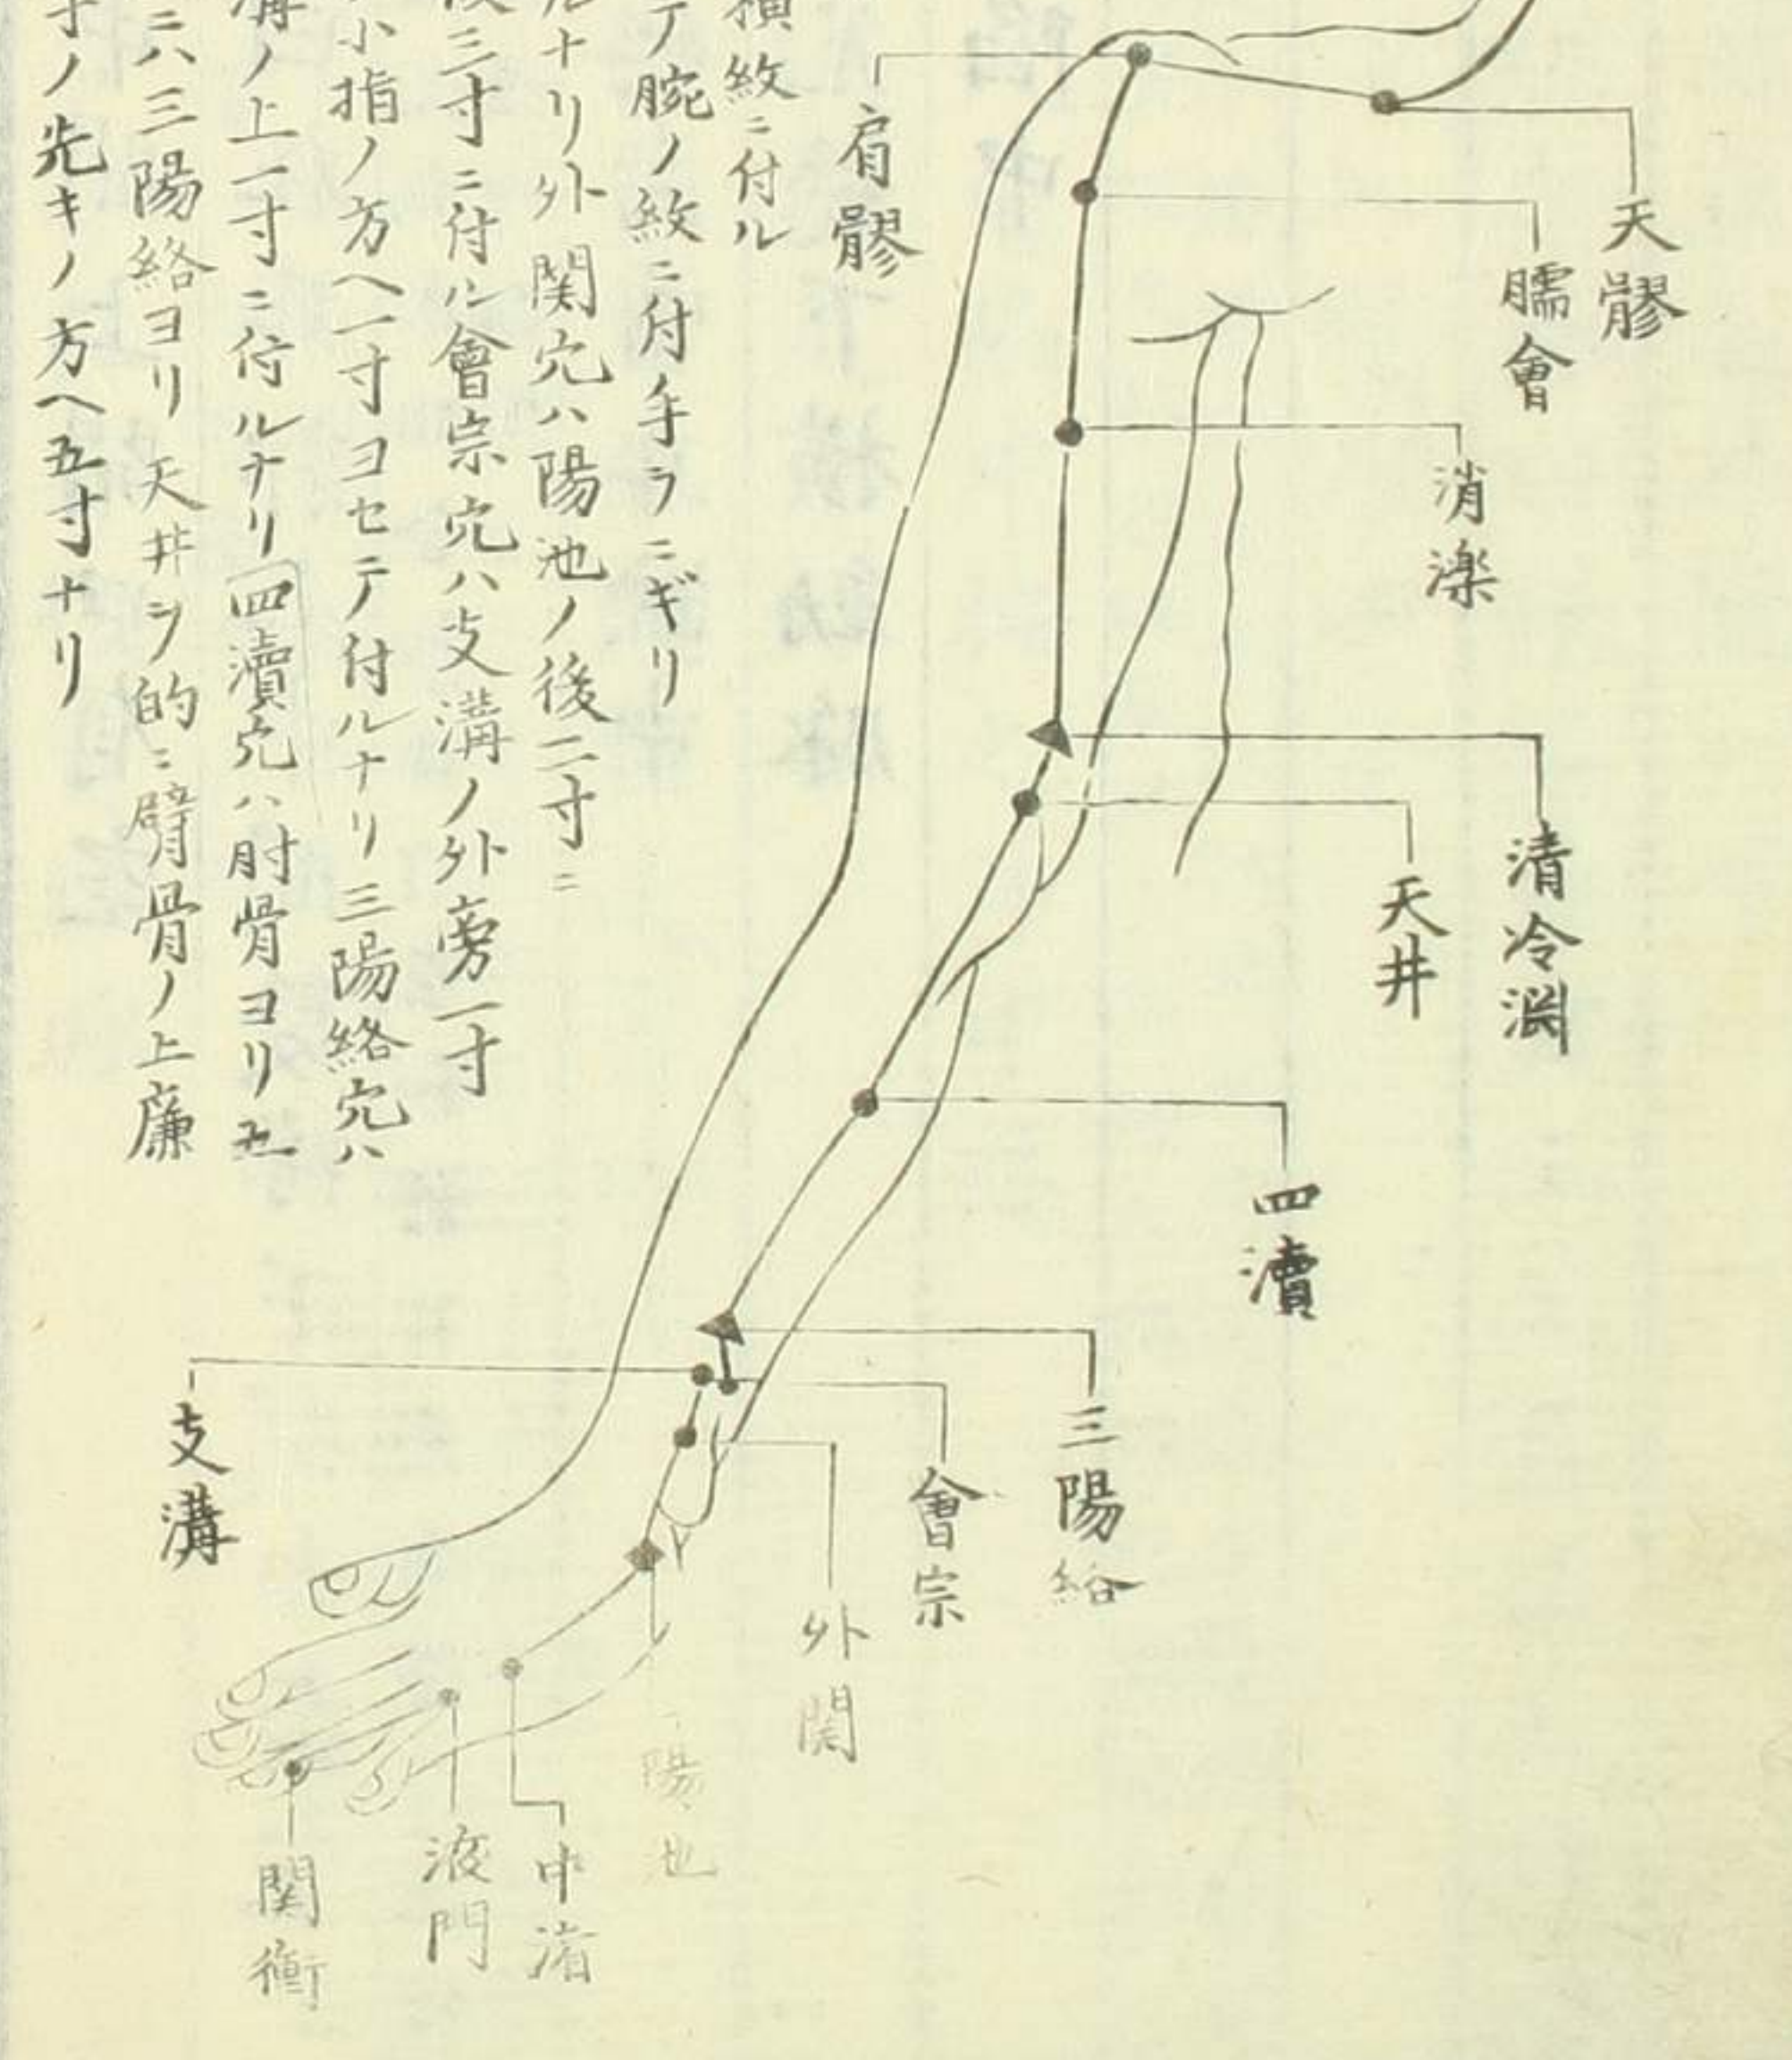 天髎
臑會
消濼
清冷淵
天井
四瀆
三陽絡
會宗
外関
陽池
中渚
液門
関衝
支溝
肩髎
横紋ニ付ル
テ腕ノ紋ニ付手ヲニギリ
ルナリ外関穴ハ陽池ノ後二寸ニ
後三寸ニ付ル會宗穴ハ支溝ノ外旁一寸
小指ノ方ヘ一寸ヨセテ付ルナリ三陽絡穴ハ
溝ノ上一寸ニ付ルナリ四瀆穴ハ肘骨ヨリ五
ニハ三陽絡ヨリ天井ヲ的ニ臂骨ノ上廉
寸ノ先キノ方ヘ五寸ナリ